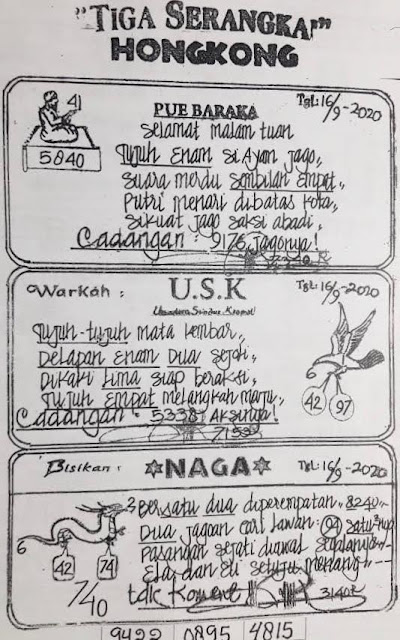 "TIGA SERANGKAI"
HONGKONG
41
5840
PUE BARAKA
Tgl: 16/9-2020
Selamat malam tuan
Tujuh Enam si Ayam jago,,
Suara merdu Sembilan Empat,,
Putri menari dibatas kota,,
Sikuat jago saksi abadi,,
Cadangan : 9176 Jagonya!
Warkah :
U.S.K
Tgl: 16/9-2020
Tujuh-tujuh mata kembar,,
Delapan Enam Dua sejoli,,
Dikaki Lima siap beraksi,,
Tujuh Empat melangkah maju,,
Cadangan : 5338 Aksinya!
42 97
Bisikan :
NAGA
Tgl: 16/9-2020
3
6
42 74
7/40
Bersatu dua diperempatan,, 8240
Dua jagoan cari lawan
Pasangan sejati diawal
Eta dan Eli setuju menang
tdk Koment
3140
9422 0895 4815